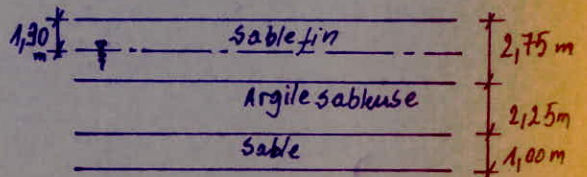 1,30
m
sable fin
2,75 m
Argile sableuse
2,25m
sable
1,00m